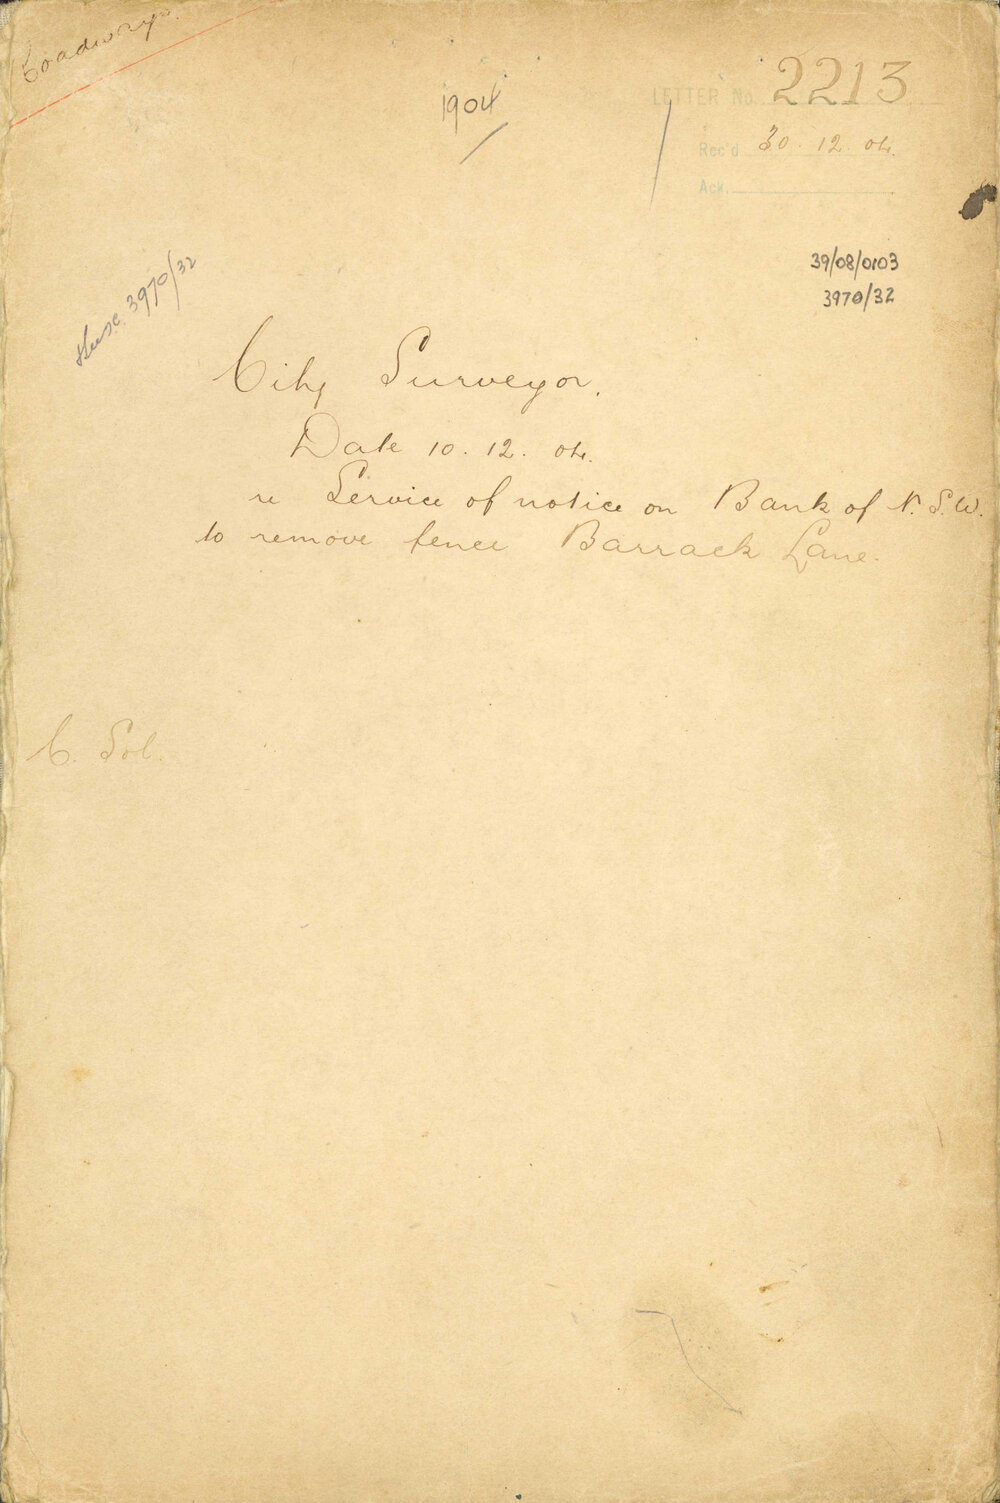 Roadways.
1904
LETTER No. 2213
Rec'd 30.12.04.
Ack.
39/08/0103
3970/32
3970/32
City Surveyor.
Date 10.12.04.
re Service of notice on Bank of N.S.W.
to remove fence Barrack Lane.
C. Sol.